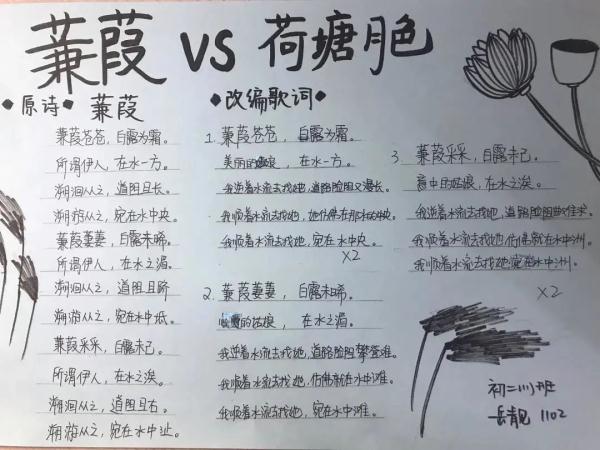 蒹葭 VS 荷塘月色
◆原诗◆ 蒹葭
蒹葭苍苍，白露为霜。
所谓伊人，在水一方。
溯洄从之，道阻且长。
溯游从之，宛在水中央。
蒹葭萋萋，白露未晞。
所谓伊人，在水之湄。
溯洄从之，道阻且跻。
溯游从之，宛在水中坻。
蒹葭采采，白露未已。
所谓伊人，在水之涘。
溯洄从之，道阻且右。
溯游从之，宛在水中沚。
◆改编歌词◆
1. 蒹葭苍苍，白露为霜。
美丽的姑娘，在水一方。
我逆着水流去找她，道路险阻又漫长。
我顺着水流去找她，她仿佛在那水中央。
我顺着水流去找她，宛在水中央。
X2
2. 蒹葭萋萋，白露未晞。
的姑娘，在水之湄。
我逆着水流去找她，道路险阻攀登难。
我顺着水流去找她，仿佛就在水中滩。
我顺着水流去找她，宛在水中滩。
3. 蒹葭采采，白露未已。
意中的姑娘，在水之涘。
我逆着水流去找她，道路险阻曲难求。
我顺着水流去找她，仿佛就在水中洲。
我顺着水流去找她，宛在水中洲。
X2
初二川班
岳靓 1102